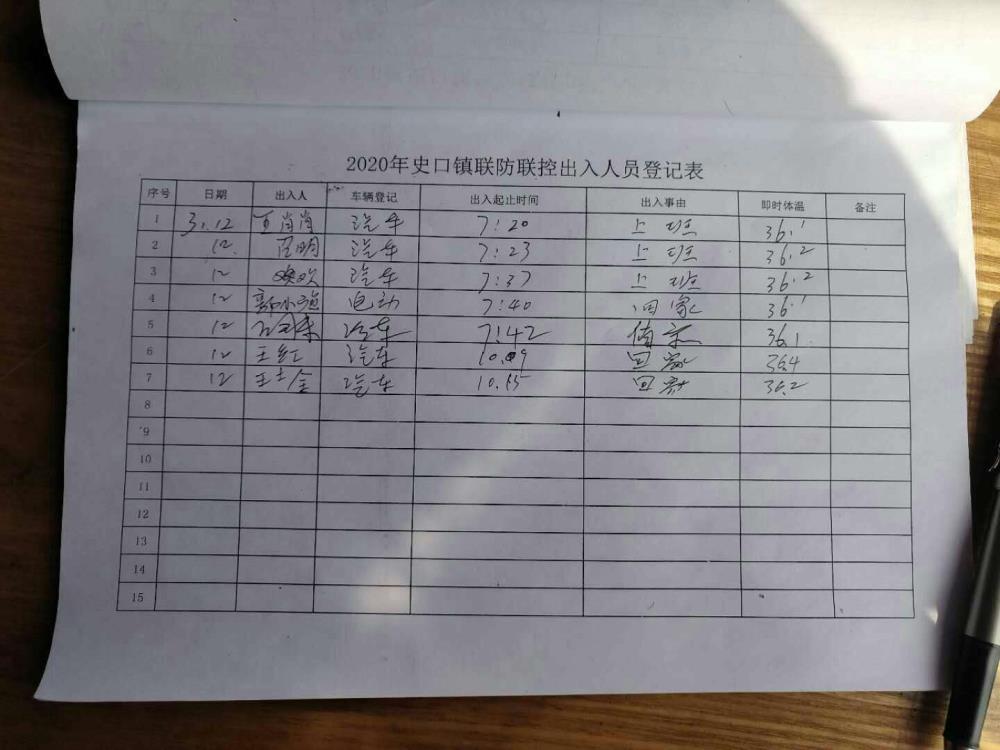 2020年史口镇联防联控出入人员登记表
序号 日期 出入人 车辆登记 出入起止时间 出入事由 即时体温 备注
1 3.12 肖肖 汽车 7:20 上班 36.1
2 12 明 汽车 7:23 上班 36.2
3 12 汽车 7:37 上班 36.2
4 12 郭小 电动 7:40 回家 36.1
5 12 汽车 7:42 值 36.1
6 12 王红 汽车 10.09 回家 36.4
7 12 王士金 汽车 10.15 回家 36.2
8
9
10
11
12
13
14
15